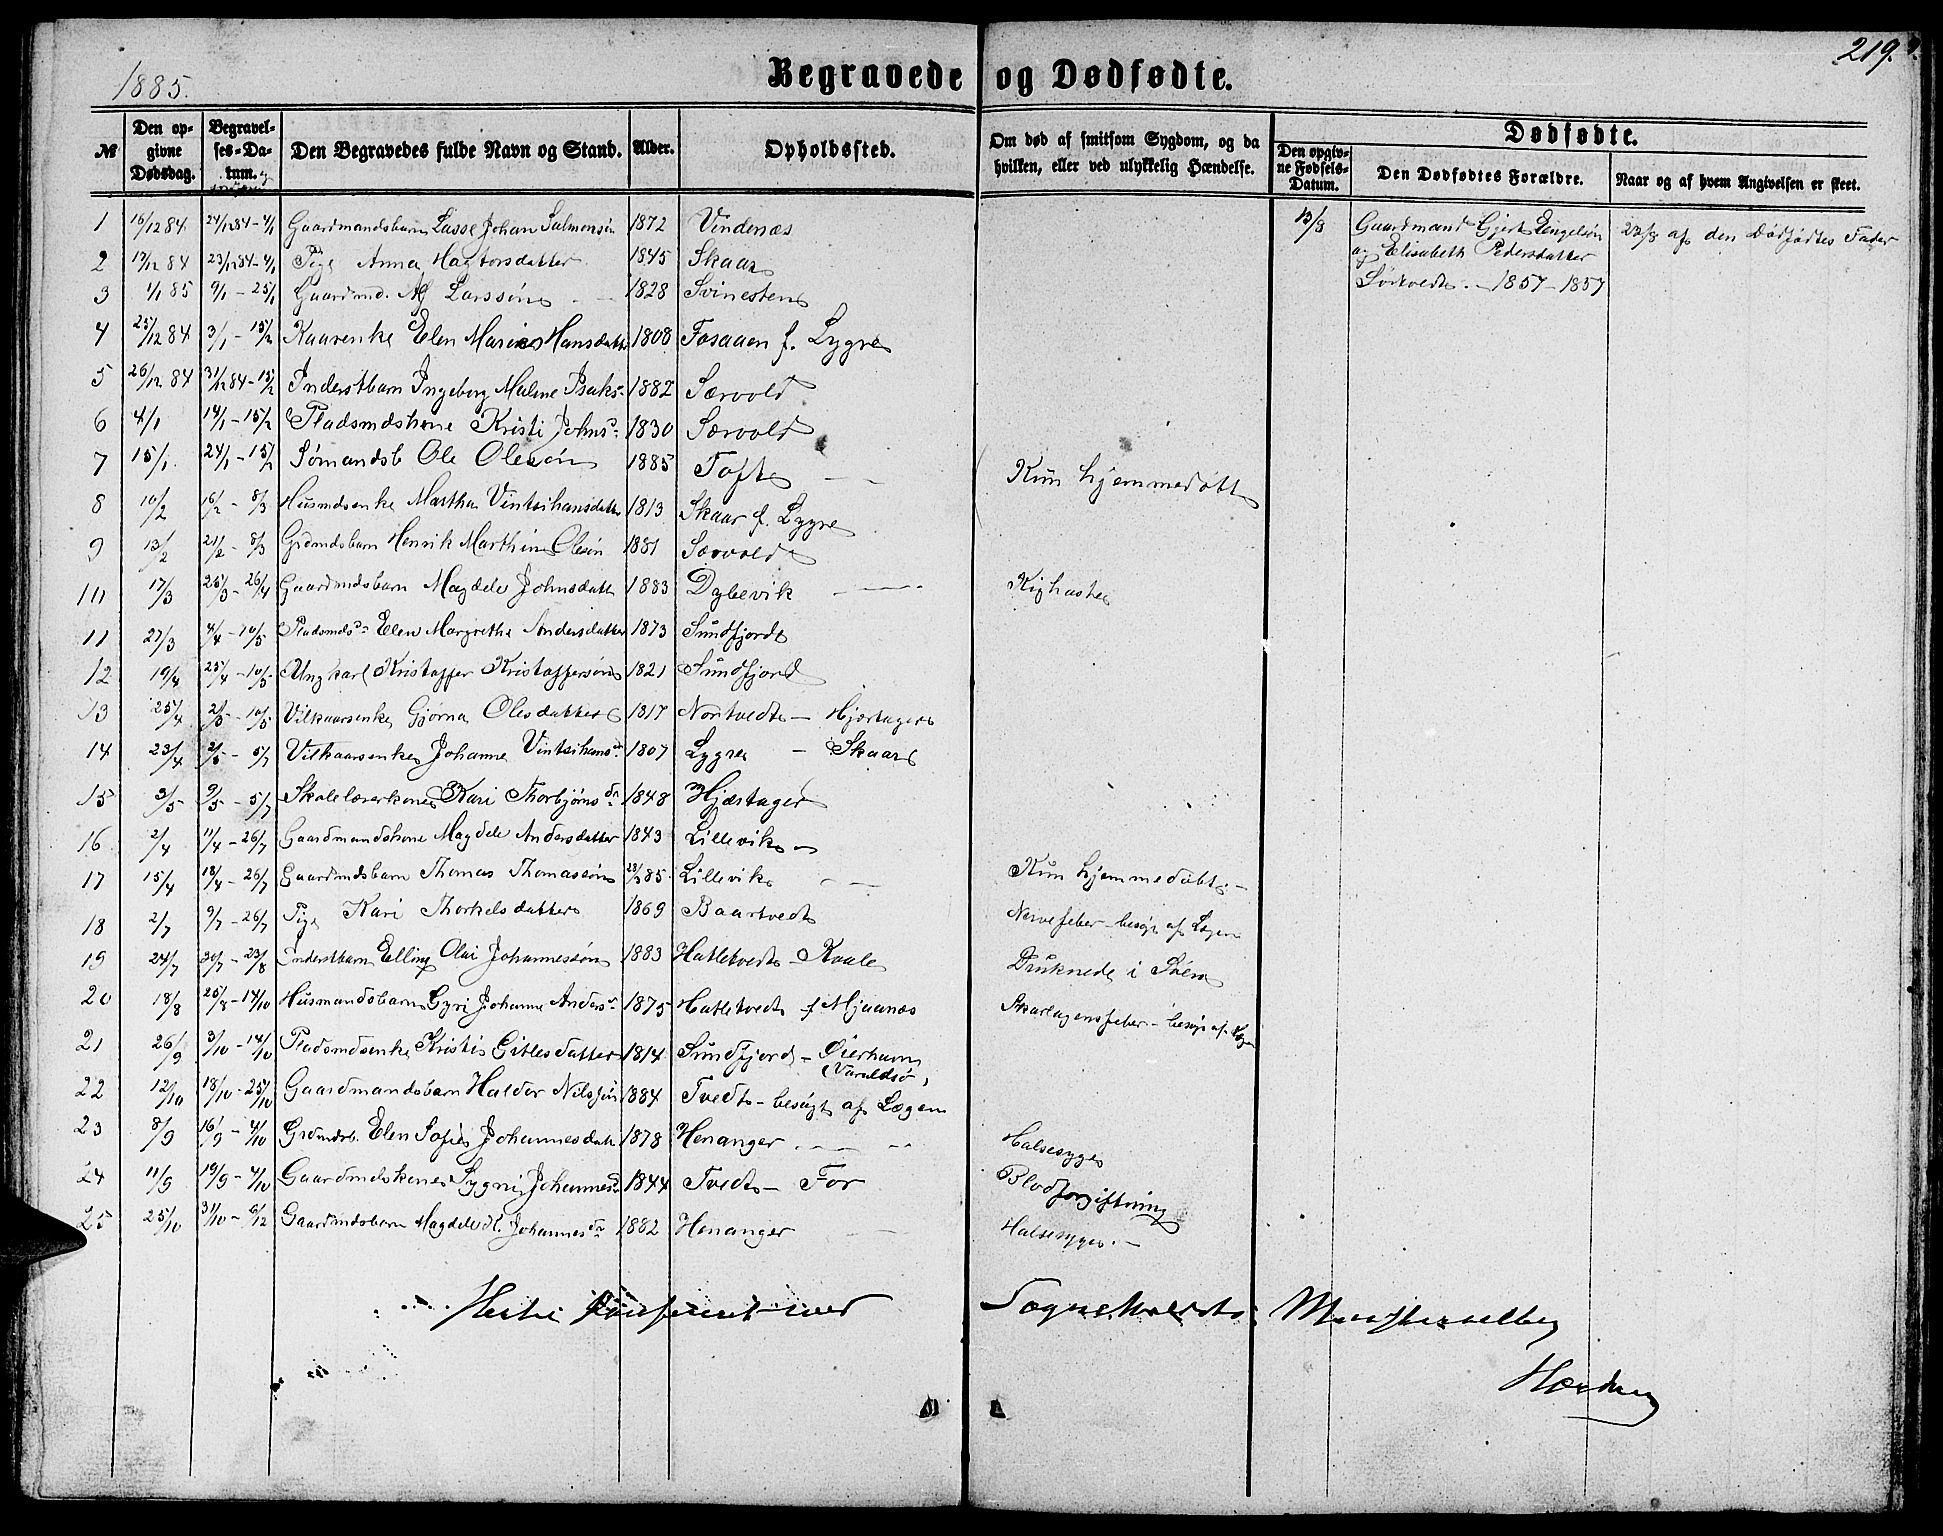 219.
1885.
Begravede og Dødfødte.
№ Den op-givne Dødsdag. Begravel-ses-Da-tum. Den Begravedes fulde Navn og Stand. Alder. Opholdssted. Om død af smitsom Sygdom, og da hvilken, eller ved ulykkelig Hændelse. Dødfødte. Den opgiv-ne Fødsels-Datum. Den Dødfødtes Forældre. Naar og af hvem Angivelsen er skeet.
1 16/12 84 24/12 84 - 4/1 Gaardmandsbarn Lasse Johan Salmonsøn 1872 Vindenæs 13/8 Gaardmand Gjert Engelsøn 22/8 af den Dødfødtes Fader
og Elisabeth Pedersdatter
Sørtvedt. - 1857 - 1857
2 17/12 84 23/12 84 - 4/1 Pige Anna Hagtorsdatter 1845 Skaar
3 1/1 85 9/1 - 25/1 Gaardmd. Larssøn 1828 Svinesten
4 25/12 84 3/1 - 15/2 Kaarenke Elen Marie Hansdatter 1808 Fosaaen f. Lygre
5 26/12 84 31/12 84 - 15/2 Inderstbarn Ingeborg Maline Isaks- 1882 Sørvold
6 4/1 14/1 - 15/2 Pladsmdskone Kristi Johns 1830 Sørvold
7 15/1 24/1 - 15/2 Sømandsb Ole Olesøn 1885 Tofte Kun hjemmedøbt
8 10/2 16/2 - 8/3 Husmdsenke Martha Vintsihansdatter 1813 Skaar f. Lygre
9 13/2 21/2 - 8/3 Grdmdsbarn Henrik Marthin Olesøn 1881 Sørvold
10 17/3 25/3 - 26/4 Gaardmdsbarn Magdele Johnsdatter 1883 Dybevik Kighoste
11 27/3 4/4 - 10/5 Pladsmds Elen Margrethe Andersdatter 1873 Sundfjord
12 19/4 25/4 - 10/5 Ungkarl Kristaffer Kristaffersøn 1821 Sundfjord
13 25/4 2/5 - 10/5 Vilkaarsenke Gjørna Olesdatter 1817 Nortvedt - Hjortager
14 23/4 2/5 - 5/7 Vilkaarsenke Johanne Vintsihans 1807 Lygre - Skaar
15 3/5 9/5 - 5/7 Skolelærerkone Kari Thorbjørns dr 1848 Hjørtager
16 2/4 11/4 - 26/7 Gaardmandskone Magdele Andersdatter 1843 Lillevik
17 15/4 18/4 - 26/7 Gaardmdsbarn Thomas Thomassøn 23/3 85 Lillevik Kun hjemmedøbt. -
18 2/7 9/7 - 26/7 Pige Kari Thorkelsdatter 1869 Baartvedt Nervefeber - besøgt af Lægen
19 24/7 30/7 - 23/8 Inderstbarn Elling Olai Johannessøn 1883 Hatletvedt - Kvale Druknede i Søen
20 18/8 25/8 - 14/10 Husmandsbarn Gyri Johanne Anders 1875 Hatletvedt f Mjaanæs Skarlagensfeber - besøgt af Lægen
21 26/9 3/10 - 14/10 Pladsmdsenke Kristi Gitlesdatter 1814 Sundfjord - Øierhavn
(Varaldsø)
22 12/10 18/10 - 25/10 Gaardmandsbarn Haldor Nilssøn 1884 Tvedt - besøgt af Lægen
23 8/9 16/9 - 4/10 Grdmdsb. Elen Sofie Johannesdatt 1878 Henanger Halsesyge
24 11/9 19/9 - 4/10 Gaardmdskone Sygni Johannes 1844 Tvedt - For Blodforgiftning
25 25/10 31/10 - 6/12 Gaardmdsbarn Magdele H. Johannes dr 1882 Henanger Halsesyge. -